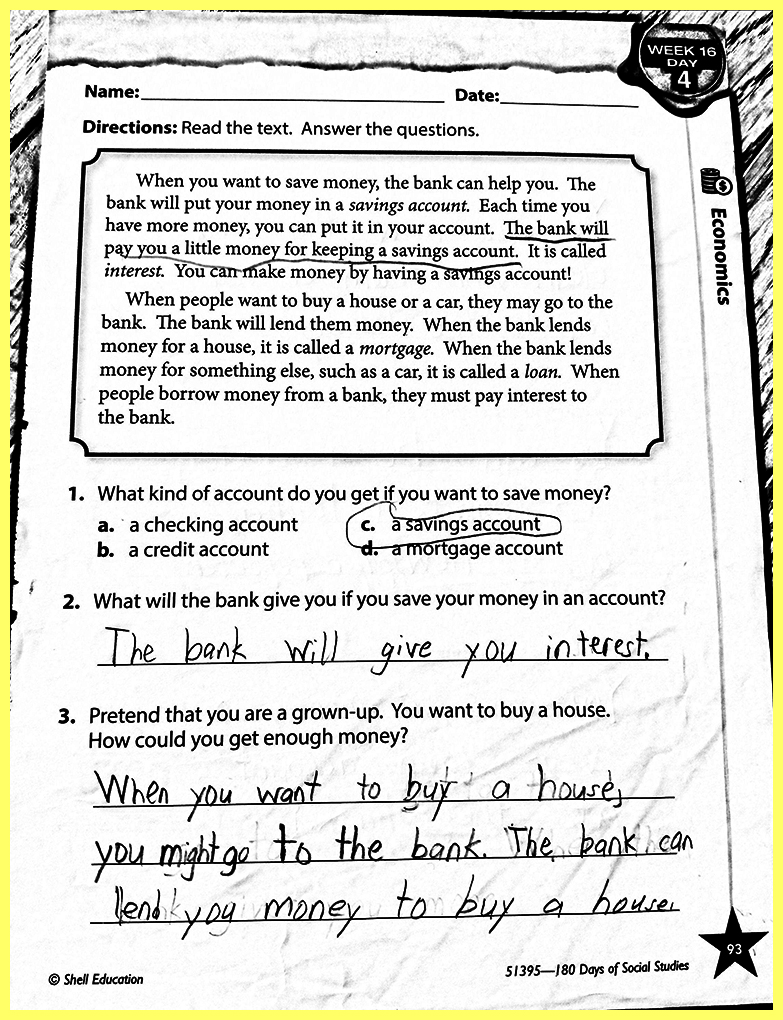 WEEK 16
DAY
4
Name: Date:
Directions: Read the text. Answer the questions.
Economics
When you want to save money, the bank can help you. The
bank will put your money in a savings account. Each time you
have more money, you can put it in your account. The bank will
pay you a little money for keeping a savings account. It is called
interest. You can make money by having a savings account!
When people want to buy a house or a car, they may go to the
bank. The bank will lend them money. When the bank lends
money for a house, it is called a mortgage. When the bank lends
money for something else, such as a car, it is called a loan. When
people borrow money from a bank, they must pay interest to
the bank.
1. What kind of account do you get if you want to save money?
a. a checking account c. a savings account
b. a credit account d. a mortgage account
2. What will the bank give you if you save your money in an account?
The bank will give you interest.
3. Pretend that you are a grown-up. You want to buy a house.
How could you get enough money?
When you want to buy a house,
you might go to the bank. The bank can
lend you money to buy a house.
93
© Shell Education 51395—180 Days of Social Studies